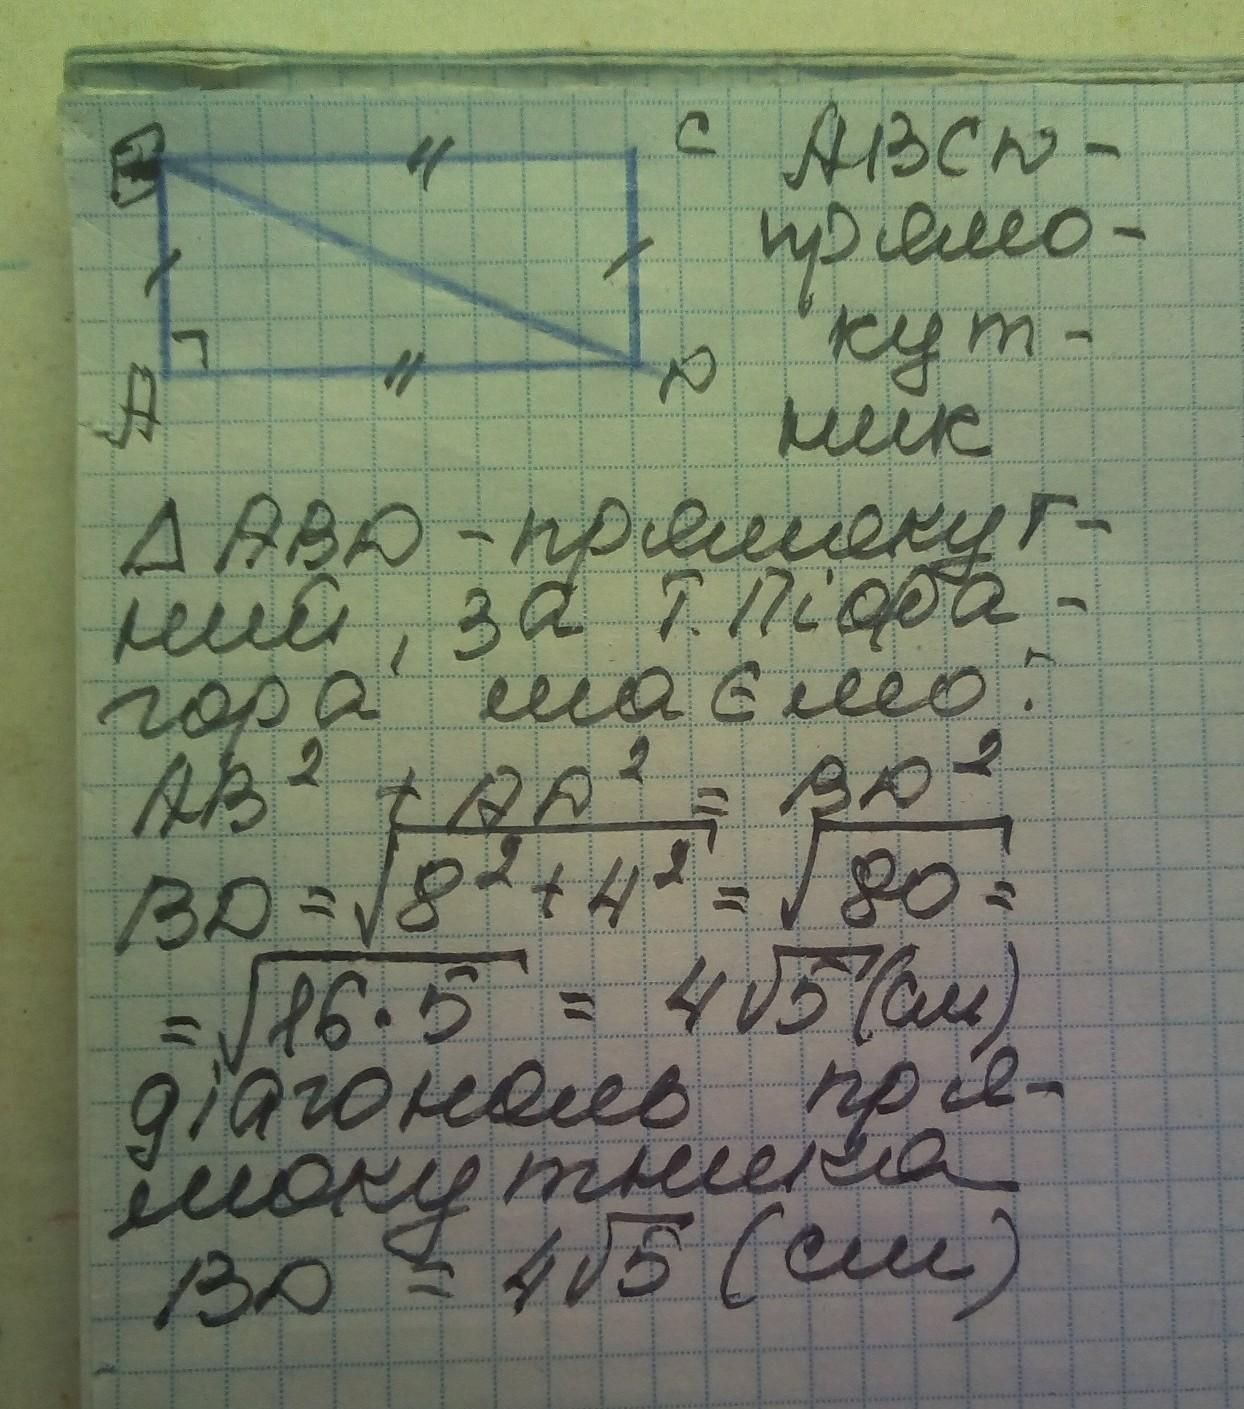 B
C
A
D
ABCD -
прямо -
кут -
ник
Δ ABD - прямокут -
ний, за т. Піфа -
гора маємо:
AB² + AD² = BD²
BD = √8² + 4² = √80 =
= √16 · 5 = 4√5 (см)
діагональ пря -
мокутника
BD = 4√5 (см)